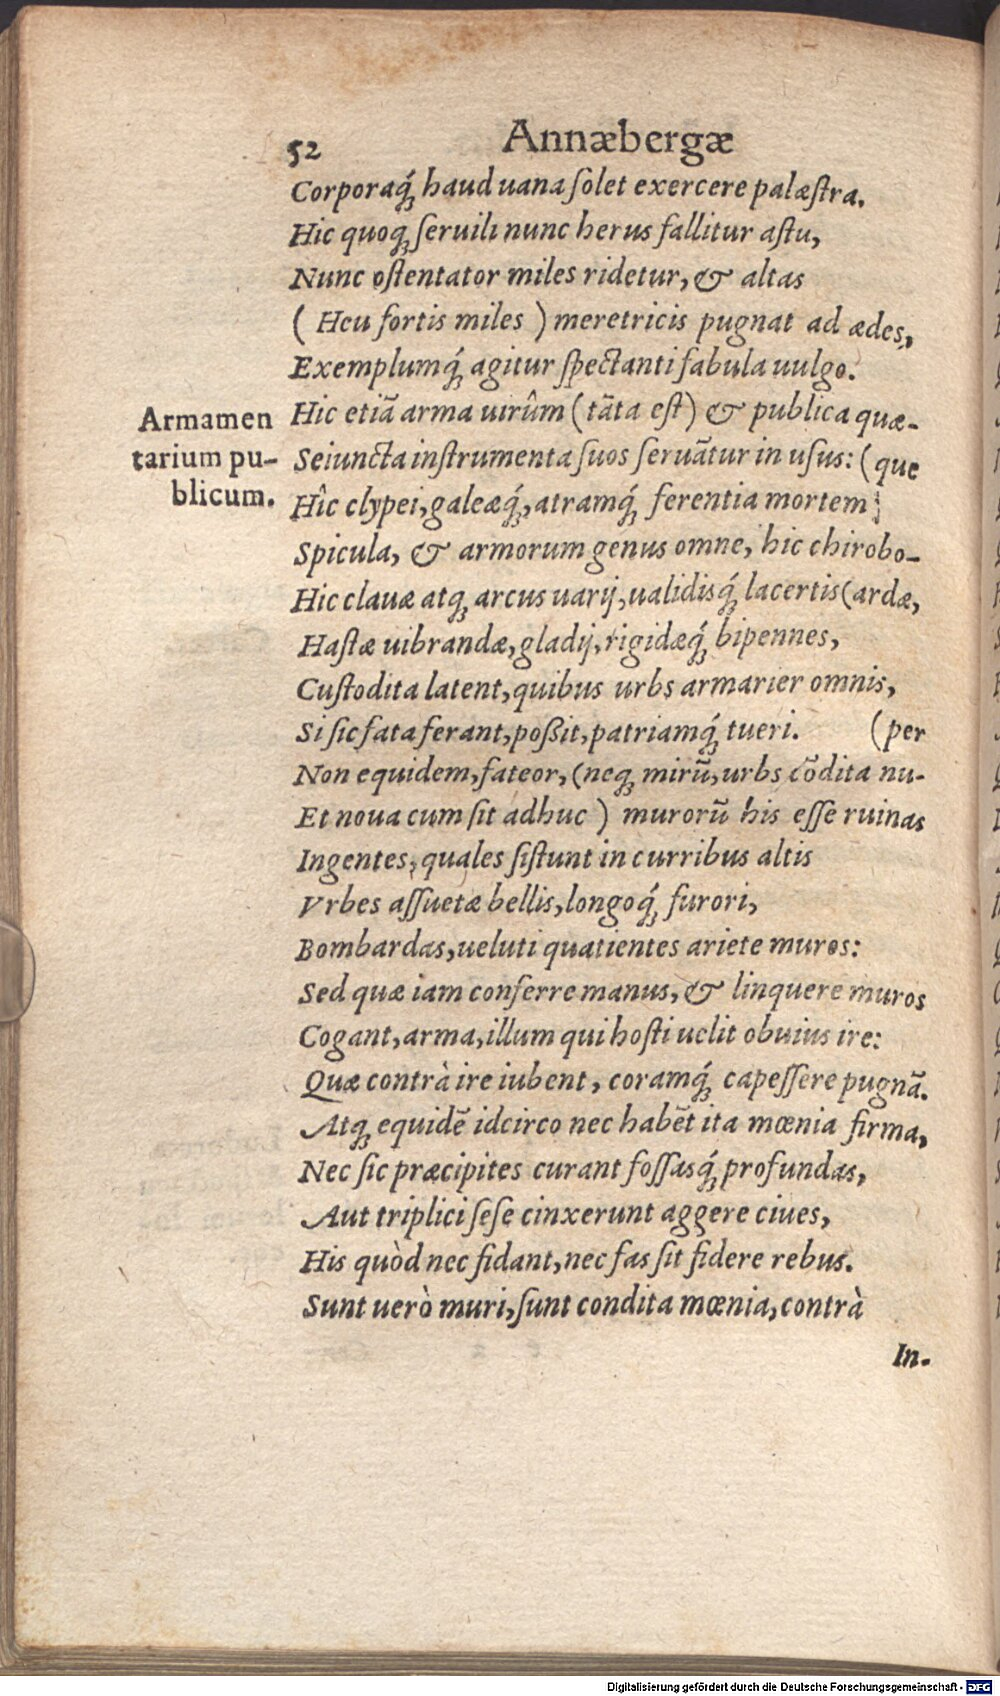 52 Annæbergæ
Corporaq́; haud uana ſolet exercere palæſtra.
Hic quoq; ſeruili nunc herus fallitur aſtu,
Nunc oſtentator miles ridetur, & altas
( Heu fortis miles ) meretricis pugnat ad ædes,
Exemplumq́; agitur ſpectanti fabula uulgo.
Armamen
tarium pu-
blicum.
Hic etiã arma uirûm ( tãta eſt ) & publica quæ-
Seiuncta inſtrumenta ſuos ſeruãtur in uſus: ( que
Hîc clypei, galeæq́;, atramq́; ferentia mortem
Spicula, & armorum genus omne, hic chirobo-
Hic clauæ atq; arcus uarij, ualidisq́; lacertis (ardæ,
Haſtæ uibrandæ, gladij, rigidæq́; bipennes,
Cuſtodita latent, quibus urbs armarier omnis,
Si ſic fata ferant, poßit, patriamq́; tueri. (per
Non equidem, fateor, (neq; mirũ, urbs cõdita nu-
Et noua cum ſit adhuc ) murorũ his eſſe ruinas
Ingentes, quales ſiſtunt in curribus altis
Vrbes aſſuetæ bellis, longoq́; furori,
Bombardas, ueluti quatientes ariete muros:
Sed quæ iam conferre manus, & linquere muros
Cogant, arma, illum qui hoſti uelit obuius ire:
Quæ contrà ire iubent, coramq́; capeſſere pugnã.
Atq; equidẽ idcirco nec habẽt ita mœnia firma,
Nec ſic præcipites curant foſſasq́; profundas,
Aut triplici ſeſe cinxerunt aggere ciues,
His quòd nec fidant, nec fas ſit fidere rebus.
Sunt uerò muri, ſunt condita mœnia, contrà
In-
Digitalisierung gefördert durch die Deutsche Forschungsgemeinschaft - DFG